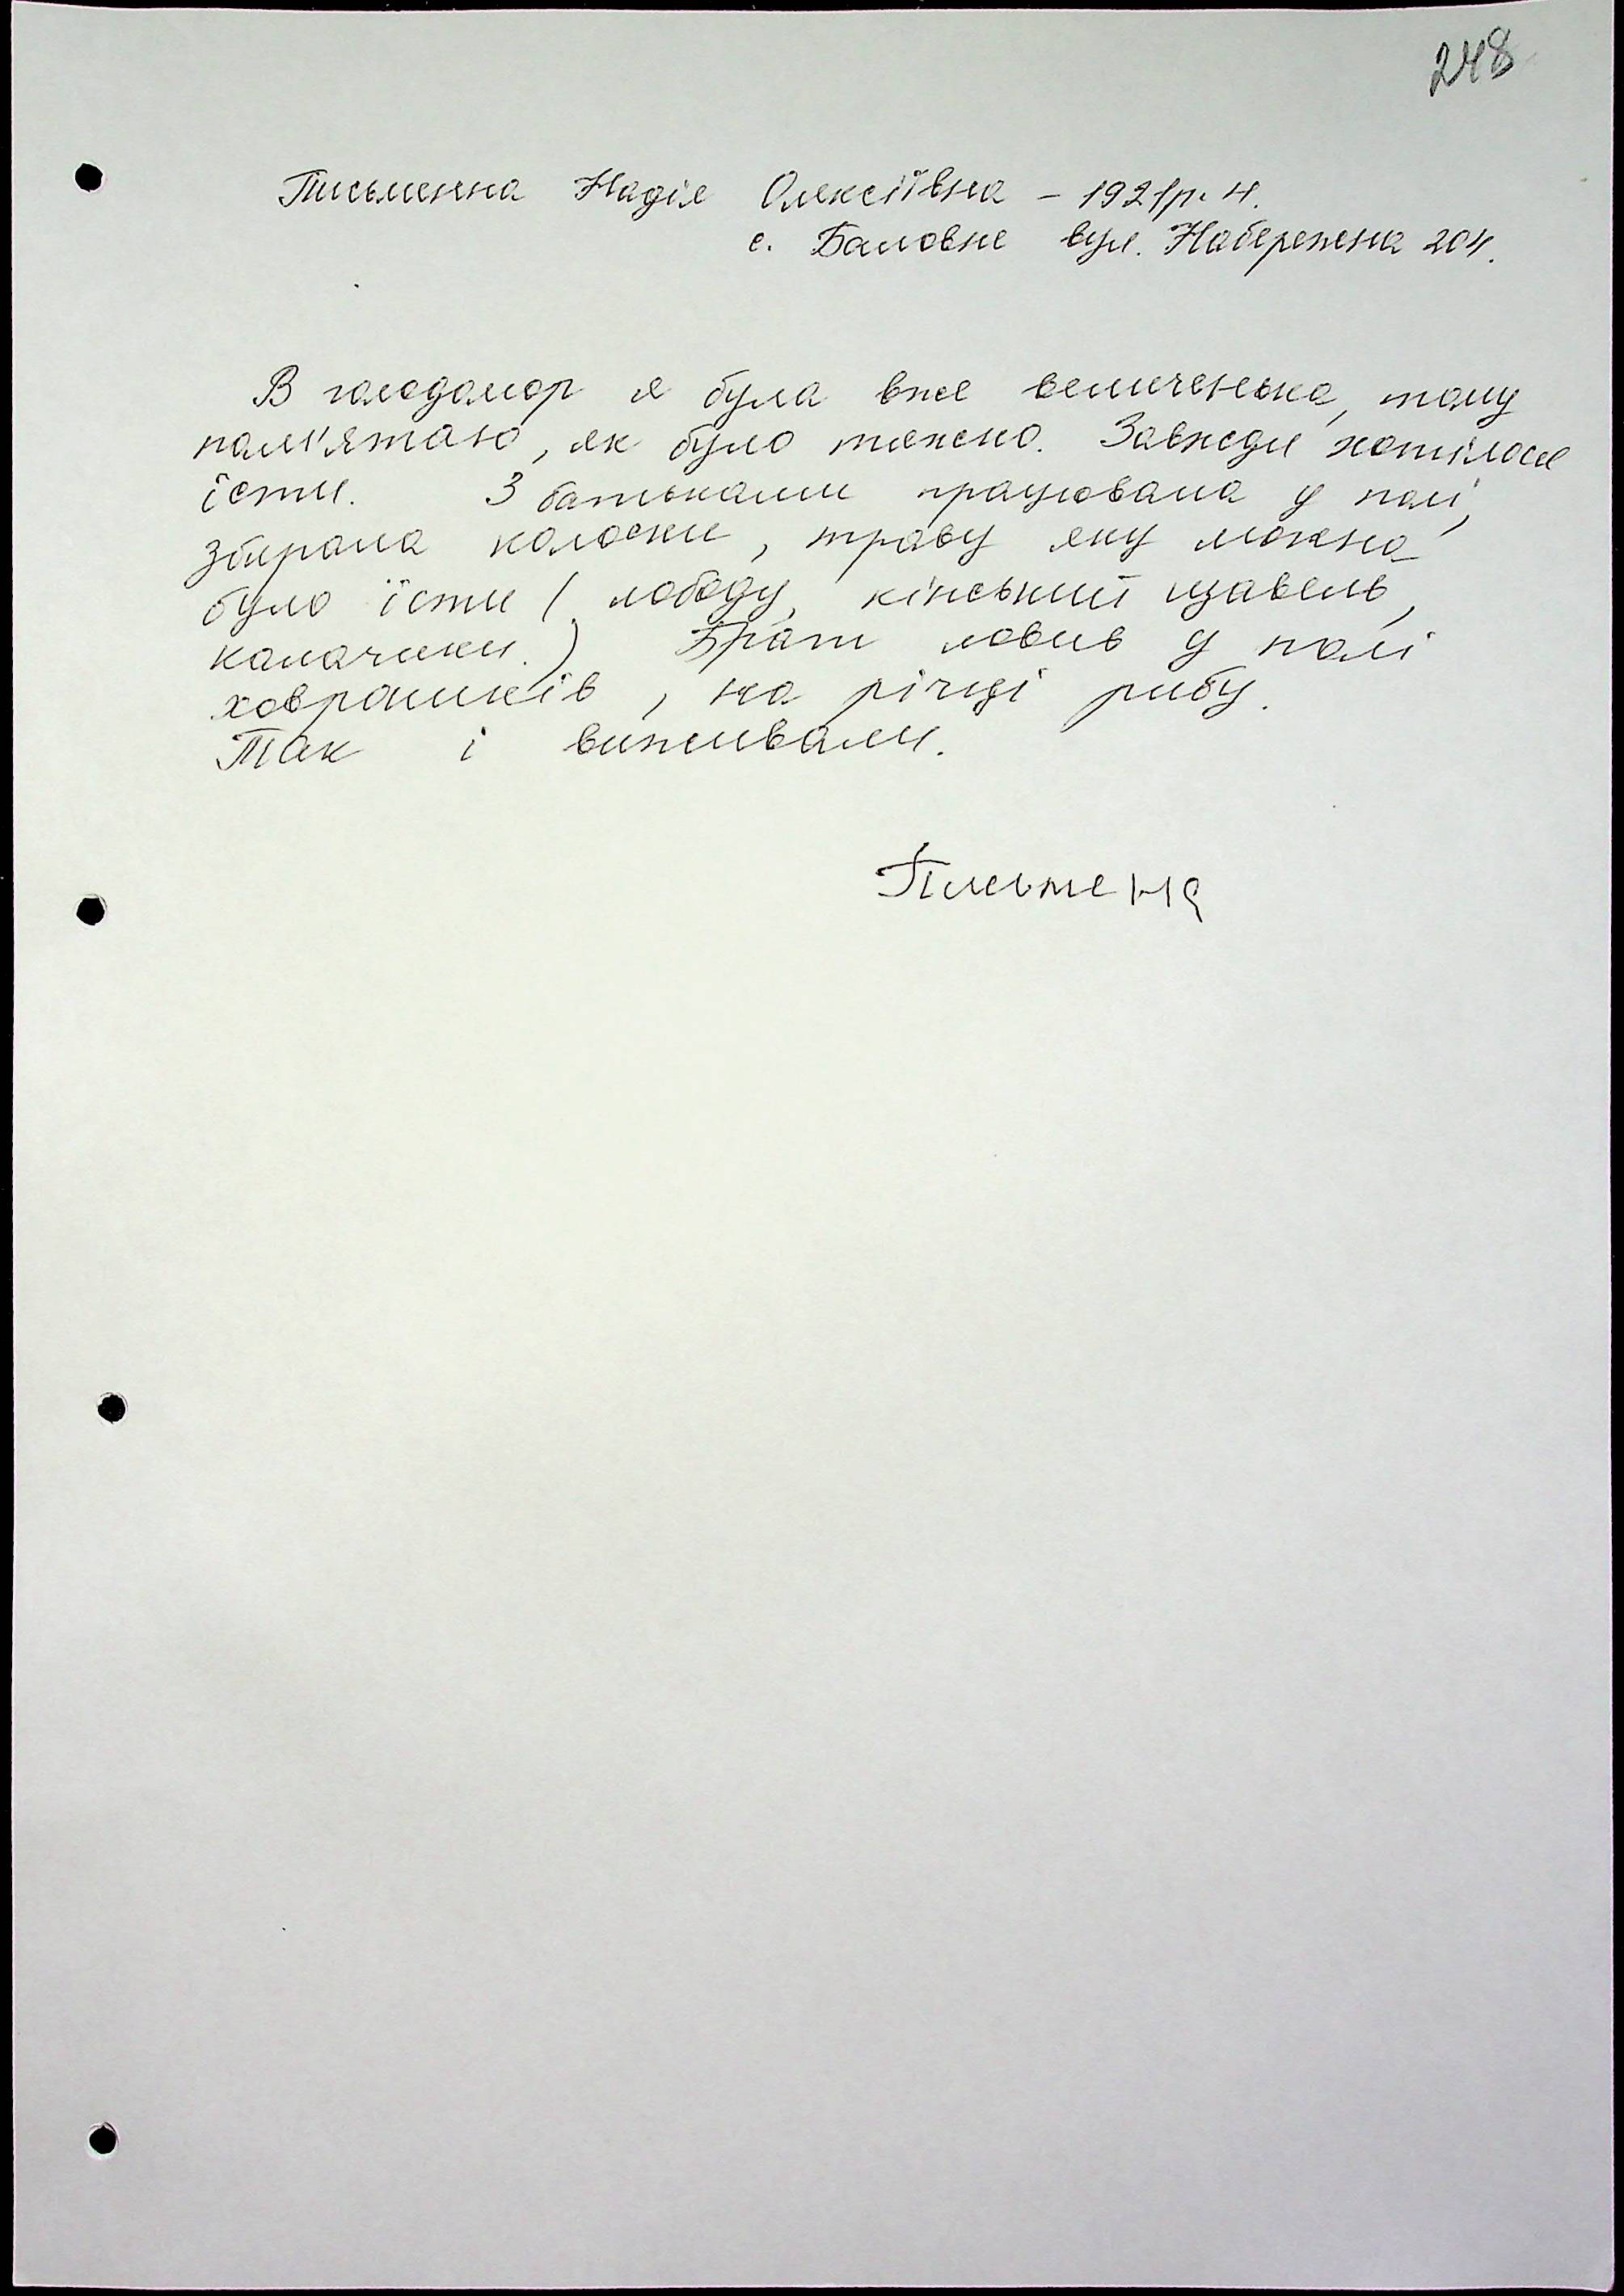 248
Письменна Надія Олексіївна – 1921р. н.
с. Баловне вул. Набережна 204.
В голодомор я була вже величенька, тому
пам'ятаю, як було тяжко. Завжди хотілося
їсти. З батьками працювала у полі,
збирала колоски, траву яку можна
було їсти (лободу, кінський щавель,
калачики.) Брат ловив у полі
ховрашків, на річці рибу.
Так і виживали.
Письмена